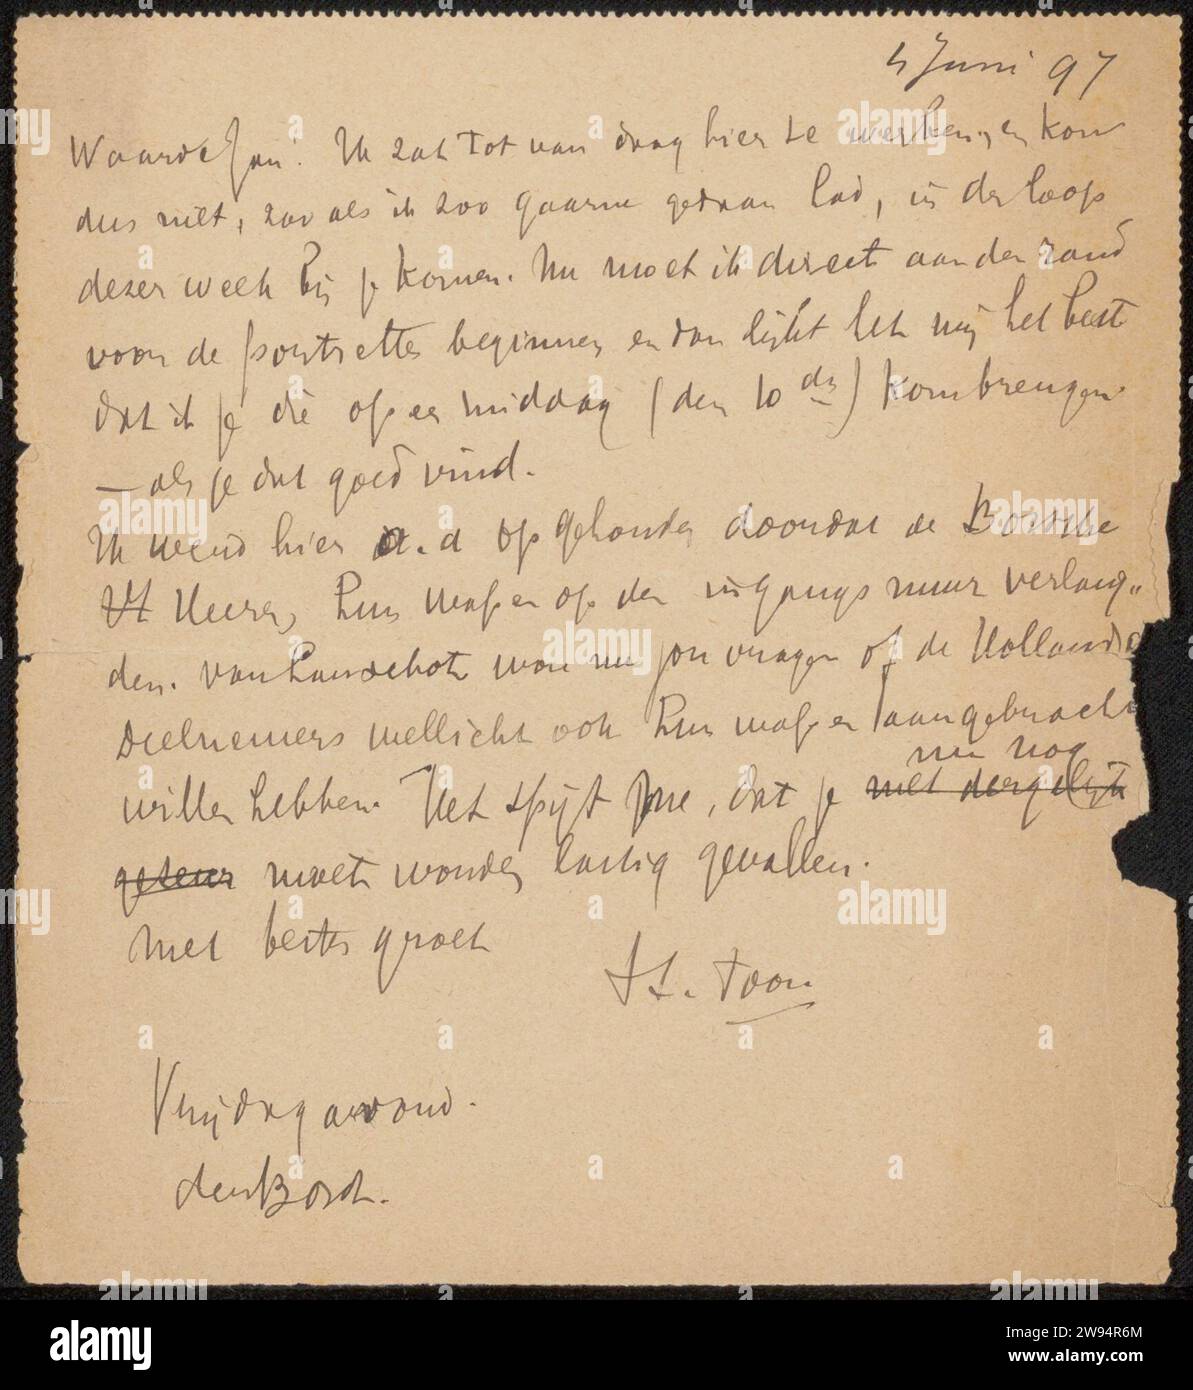 4 Juni 97
Waarde Jan! Ik zat tot van daag hier te werken, en kon
dus niet, zoo als ik zoo gaarne gedaan had, in de loop
dezer week bij je komen. Nu moet ik direct aan den rand
voor de portretten beginnen en dan lijkt het mij het best
dat ik je die op een middag (den 10den) kom brengen
— als je dat goed vind.
Ik werd hier o.a opgehouden doordat de Bossche
Heeren hun wapen op den ingangsmuur verlang„
den. van Lanschot wou nu jou vragen of de Hollandse
Deelnemers wellicht ook hun wapen aangebracht
nu nog
willen hebben. Het spijt me, dat je niet dergelijk
moet worden lastig gevallen.
Met beste groet
tt. Toon
Vrijdagavond.
den Bosch.
alamy
Image ID: 2W94R6M
www.alamy.com